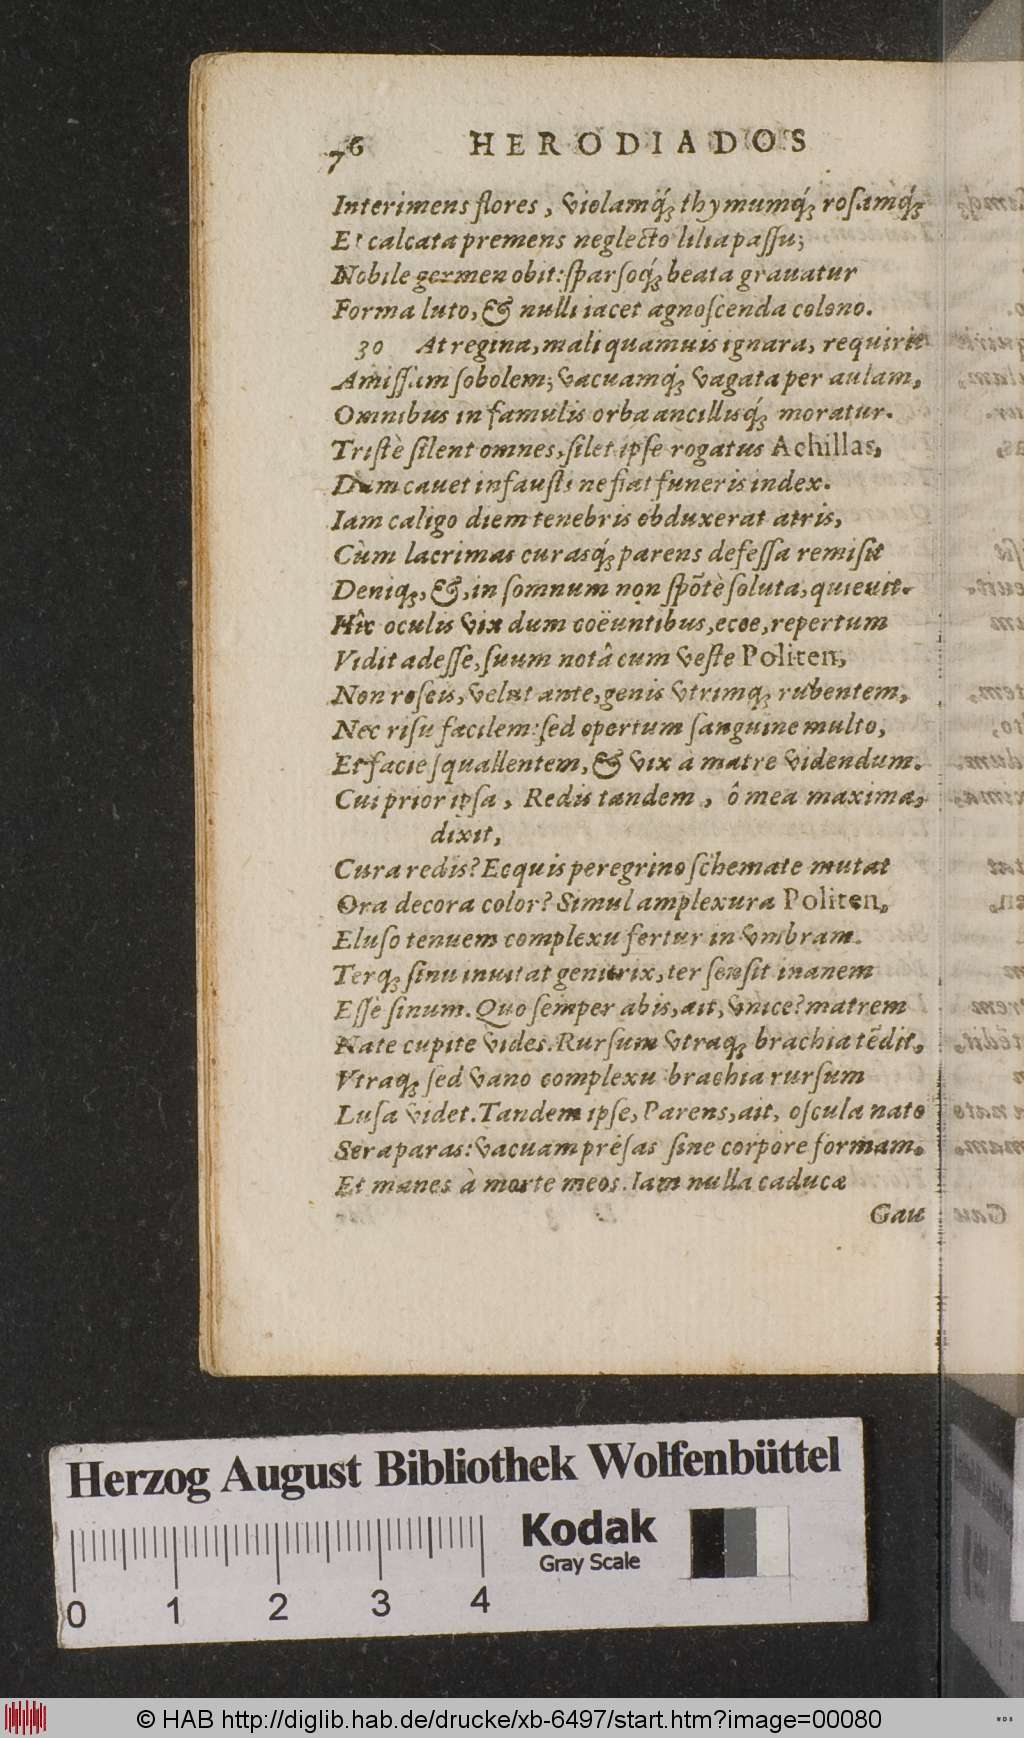 76 HERODIADOS
Interimens flores, violamq́ꝫ thymumq́ꝫ rosamq́ꝫ
Et calcata premens neglecto lilia passu;
Nobile germen obit: sparsoq́ꝫ beata grauatur
Forma luto, & nulli iacet agnoscenda colono.
30 At regina, mali quamuis ignara, requirit
Amissam sobolem; vacuamq́ꝫ vagata per aulam,
Omnibus in famulis orba ancillisq́ꝫ moratur.
Tristè silent omnes, silet ipse rogatus Achillas,
Dum cauet infausti ne fiat funeris index.
Iam caligo diem tenebris obduxerat atris,
Cùm lacrimas curasq́ꝫ parens defessa remisit
Deniqꝫ, &, in somnum non spõtè soluta, quieuit.
Hîc oculis vix dum coëuntibus, ecce, repertum
Vidit adesse, suum notâ cum veste Politen,
Non roseis, velut ante, genis vtrimqꝫ rubentem,
Nec risu facilem: sed opertum sanguine multo,
Et facie squallentem, & vix à matre videndum.
Cui prior ipsa, Redis tandem, ô mea maxima,
dixit,
Cura redis? Ecquis peregrino schemate mutat
Ora decora color? Simul amplexura Politen,
Eluso tenuem complexu fertur in vmbram.
Terqꝫ sinu inuitat genitrix, ter sensit inanem
Esse sinum. Quo semper abis, ait, vnice? matrem
Nate cupite vides. Rursum vtraqꝫ brachia tẽdit,
Vtraqꝫ sed vano complexu brachia rursum
Lusa videt. Tandem ipse, Parens, ait, oscula nato
Sera paras: vacuam prẽsas sine corpore formam.
Et manes à morte meos. Iam nulla caducæ
Gau
Herzog August Bibliothek Wolfenbüttel
Kodak
Gray Scale
0 1 2 3 4
© HAB http://diglib.hab.de/drucke/xb-6497/start.htm?image=00080